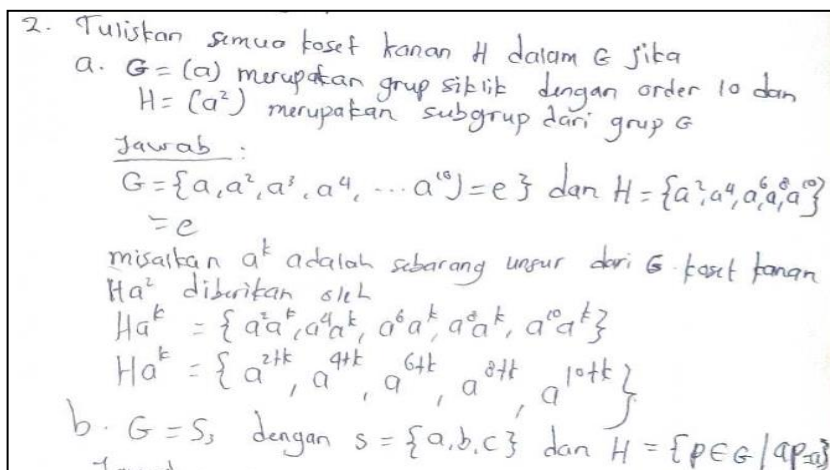 2. Tuliskan semua koset kanan H dalam G jika
a. G = (a) merupakan grup siklik dengan order 10 dan
H = (a²) merupakan subgrup dari grup G
Jawab :
G = {a, a², a³, a⁴, ... a¹⁰) = e} dan H = {a², a⁴, a⁶, a⁸, a¹⁰}
= e
misalkan aᵏ adalah sebarang unsur dari G. koset kanan
Ha² diberikan oleh
Haᵏ = {a²aᵏ, a⁴aᵏ, a⁶aᵏ, a⁸aᵏ, a¹⁰aᵏ}
Haᵏ = {a²⁺ᵏ, a⁴⁺ᵏ, a⁶⁺ᵏ, a⁸⁺ᵏ, a¹⁰⁺ᵏ}
b. G = S₃ dengan s = {a, b, c} dan H = {p∈G | ap=a}